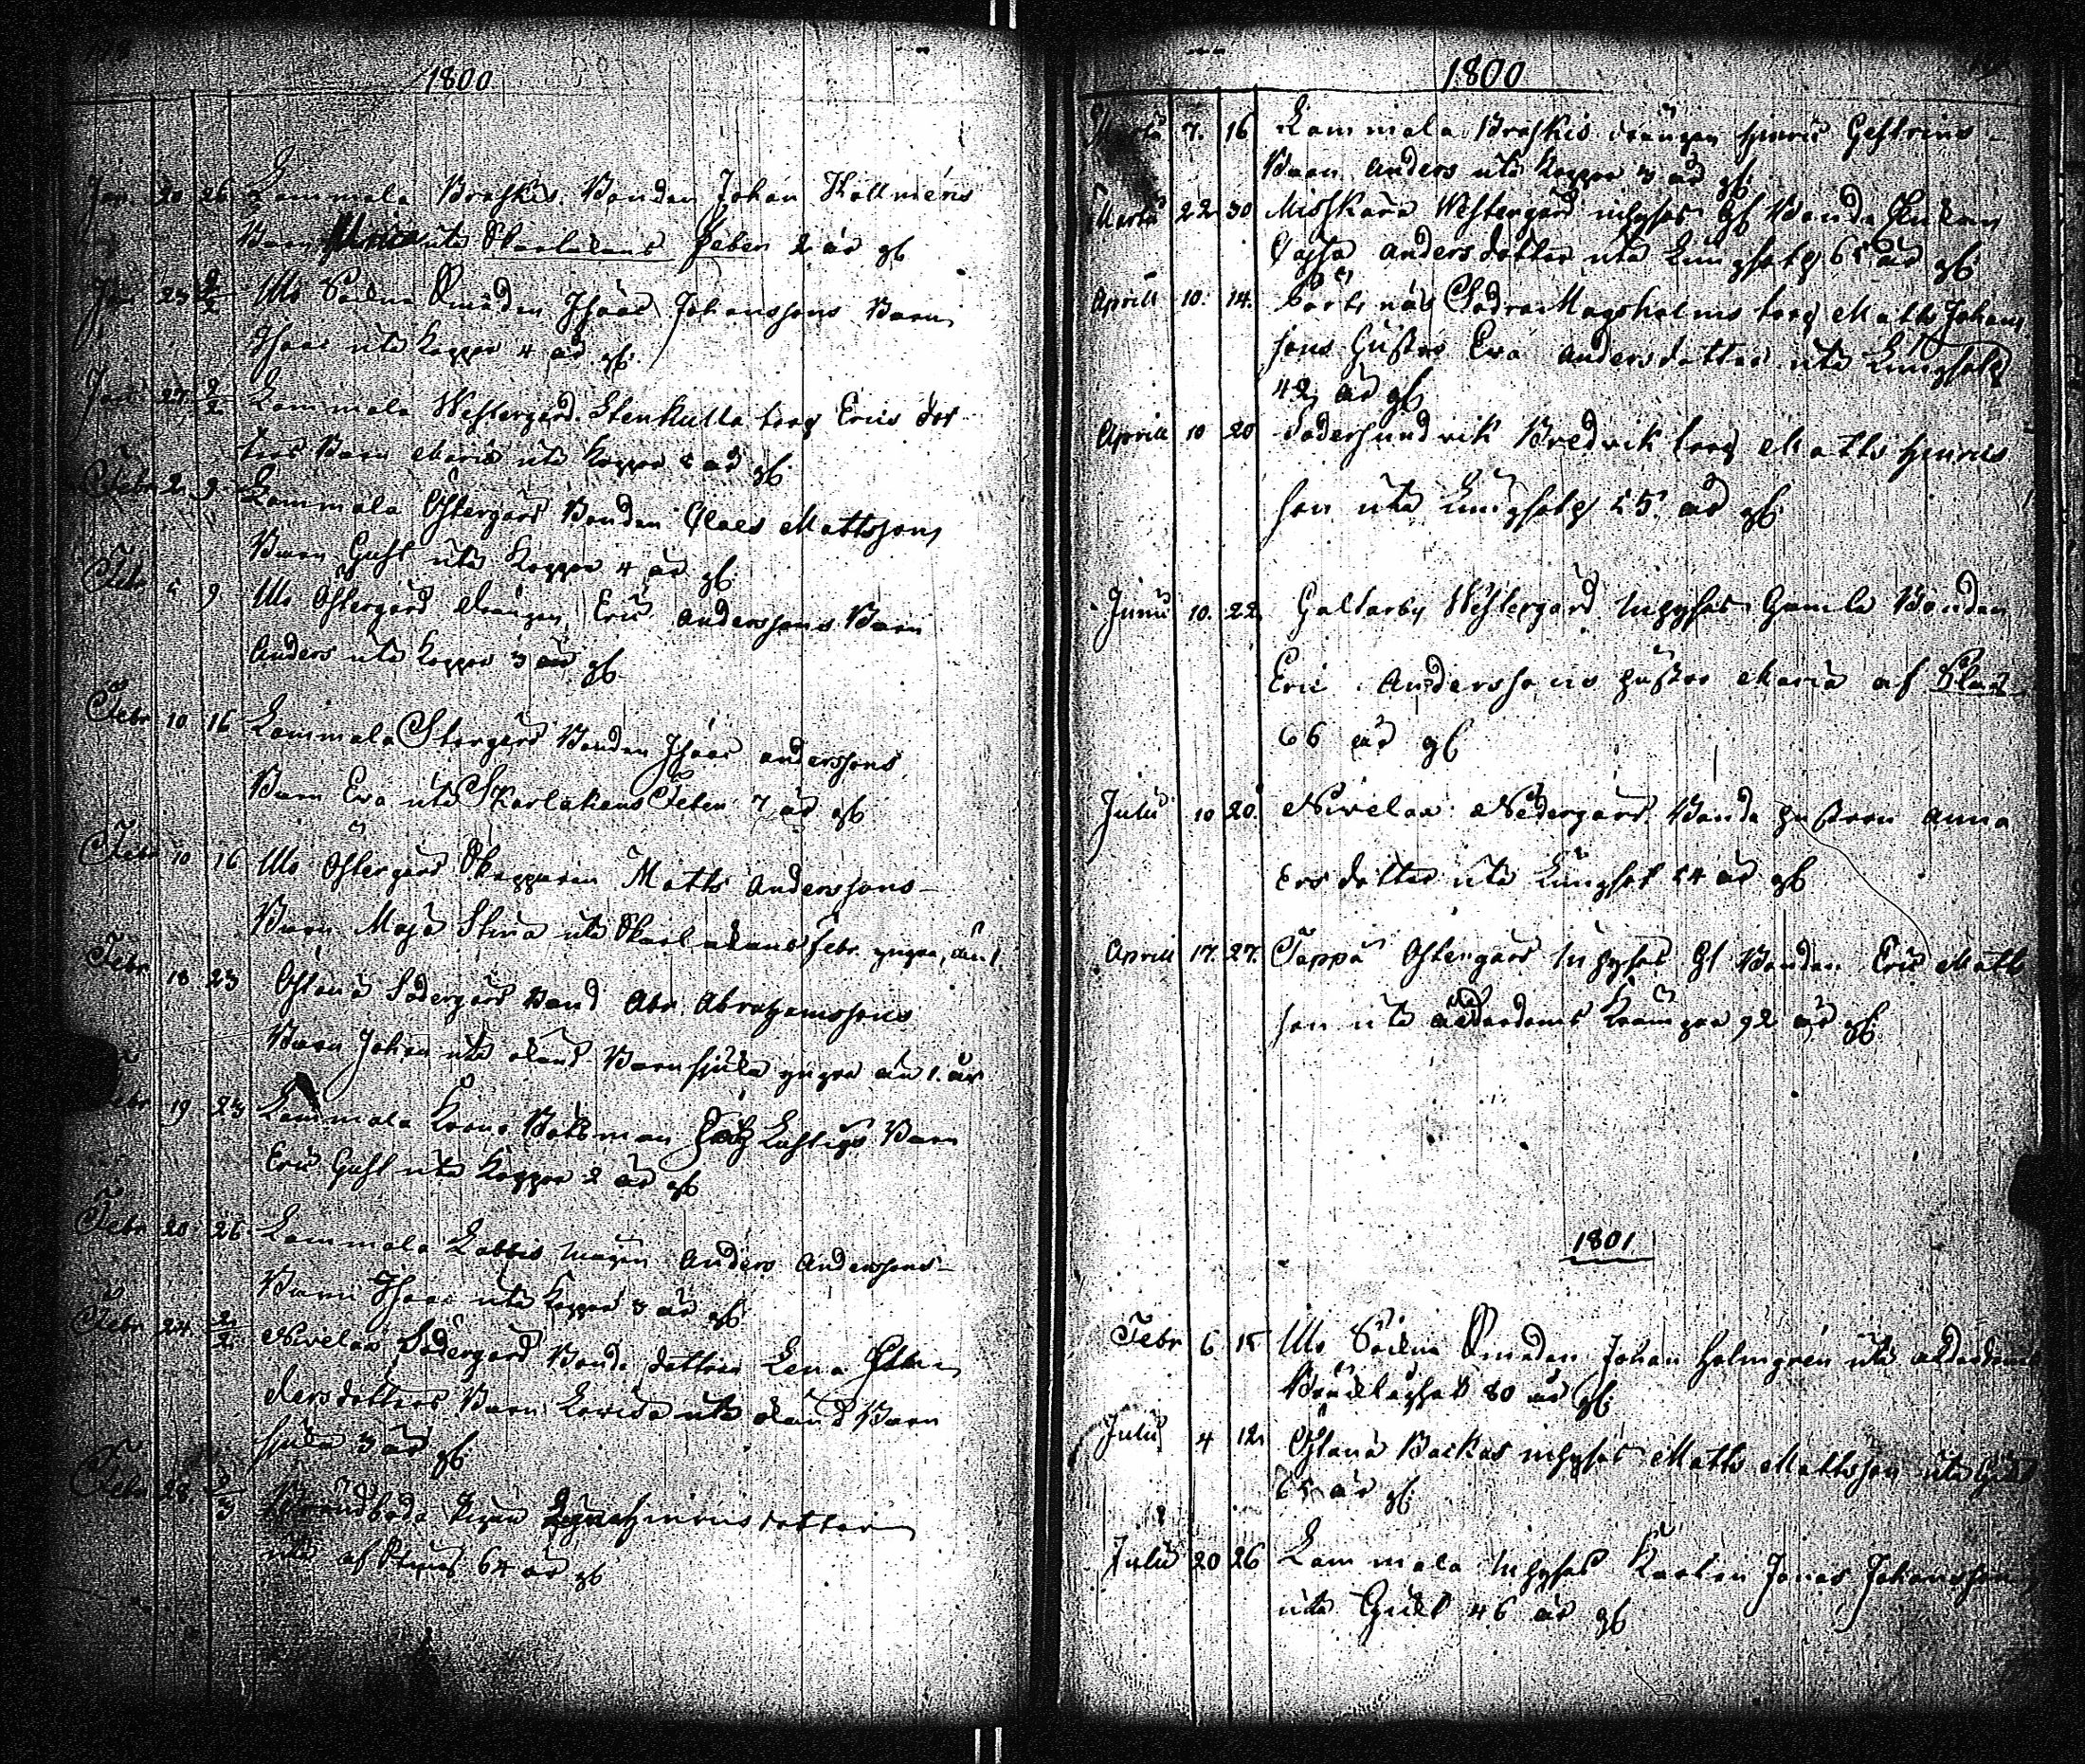 1800
Jan 20 26 Lammala Braskis Bonden Johan Hallmens
Barn utaf Skarlakans Feber 2 år gl
Jan 23 2/2 Ulo Smeden Isaac Johanssons Barn
Isaac utaf Koppor 4 år gl
Jan 27 2/2 Lammala Westergård Stenkulla torp Erics dot
ters Barn Maria utaf Koppor år gl
Febr 2 9 Lammala Östergård Bonden Claes Mattssons
Barn Gust utaf Koppor 4 år gl
Febr 9 Ulo Östergård drängen Eric Anderssons Barn
Anders utaf Koppor 3 år gl
Febr 10 16 Lammala Storgård Bonden Isaac anderssons
Barn Eva utaf Skarlakans Feber 7 år gl
Febr 10 16 Ulo Östergård Skepparen Matts Anderssons
Barn Maja Stina utaf Skarlakans febr yngre än 1.
Febr 18 23 Östanå Södergård Bond Abr. Abrahamssons
Barn Johan utaf okänd Barnsjuka yngre än 1. år
Febr 19 23 Lammala Krono Båtsman Lustigs Barn
Eric Gust utaf Koppor 2 år gl
Febr 20 26 Lammala Labbis mågen Anders Anderssons
Barn Isaac utaf Koppor 3 år gl
Febr 24 2/2 Nivelax Södergård Bonde dottren Lena
dersdotters Barn Lovisa utaf okänd Barn
sjuka 3 år gl
Febr 28 2/3 Strandboda Pigan Hinricsdotter
utaf 64 år gl
1800
Martii 7. 16 Lammala Braskis drängen Hinric Gestrins
Barn Anders utaf Koppor 3 år gl
Martii 22 30 Misskärr Westergård inhyses Gl Bonde Enkan
Cajsa Andersdotter utaf Lungsot 65 år gl
Aprill 10. 14. Södra Magsholms torp Matts Johans
sons Hustro Eva Andersdotter utaf Lungsot
42 år gl
Aprill 10 20 Södersundvik Bredvik torp Matts Hinrics
son utaf Lungsot 55 år gl
Junii 10. 22 Galtarby Westergård Inhyses Gamla Bonden
Eric Anderssons hustro Maria af
66 år gl
Julii 10 20. Nivelax Nedergård Bonde hustron Anna
Ersdotter utaf Lungsot 54 år gl
Aprill 17. 27. Tappå Östergård Inhyses Gl Bonden Eric Matts
son utaf ålderdoms Krämpor 92 år gl
1801
Febr 6 15 Ulo Smeden Johan Holmgrén utaf ålderdoms
Bräcklighet 80 år gl
Julii 4 12 Östanå Backas inhyses Matts Mattsson utaf Gikt
65 år gl
Julii 20 26 Lammala Inhyses Karlen Jonas Johansson
utaf Gikt 46 år gl